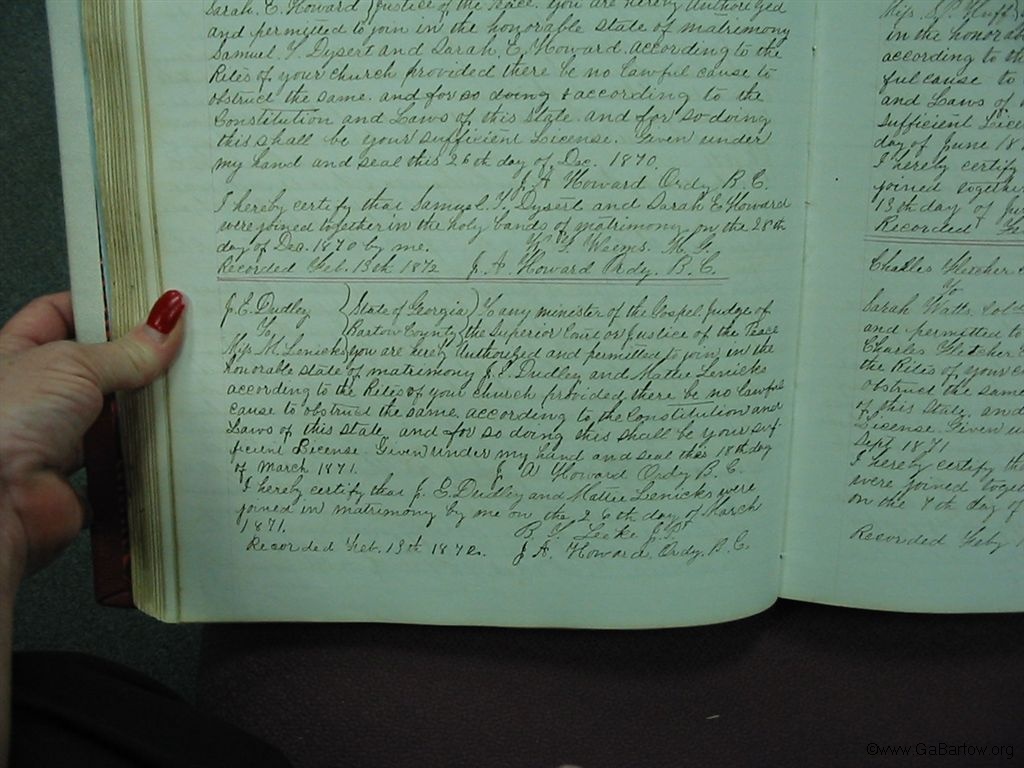 Sarah. E. Howard } Justice of the Peace. You are hereby Authorized
and permitted to join in the honorable state of matrimony
Samuel T. Dysert and Sarah. E. Howard. according to the
Rites of your church provided there be no lawful cause to
obstruct the same. and for so doing & according to the
Constitution and Laws of this State. and for so doing
this shall be your sufficient License. Given under
my hand and seal this 26th day of Dec. 1870.
J. A. Howard Ordy. B. C.
I hereby certify that Samuel. T. Dysert and Sarah E Howard
were joined together in the holy bands of matrimony on the 28th
day of Dec. 1870 by me. Weems. M. G.
Recorded Feb. 13th 1872 J. A. Howard Ordy. B. C.
J. E. Dudley } State of Georgia } To any minister of the Gospel, Judge of
To } Bartow County } the Superior Court or Justice of the Peace
Miss. M. Lenicks } you are hereby Authorized and permitted to join in the
honorable state of matrimony J. E. Dudley and Mattie Lenicks
according to the Rites of your church provided there be no lawful
cause to obstruct the same. according to the Constitution and
Laws of this State, and for so doing this shall be your suf
ficient License. Given under my hand and seal this 18th day
of March 1871. J. A. Howard Ordy B. C.
I hereby certify that J. E. Dudley and Mattie Lenicks were
joined in matrimony by me on the 26th day of March
1871. Leeke J. P.
Recorded Feb. 13th 1872. J. A. Howard, Ordy. B. C.
Miss. S. P. Huff
in the honorab
according to th
ful cause to
and Laws of
Sufficient Licen
day of June 18
I hereby certify
joined together
13th day of
Recorded
Charles Fletcher
To
Sarah Watts. Col
and permitted to
Charles Fletcher
the Rites of your c
obstruct the same
of this State. and
License. Given u
Sept 1871
I hereby certify tha
were joined toget
on the 7th day of
Recorded Feby
©www.GaBartow.org